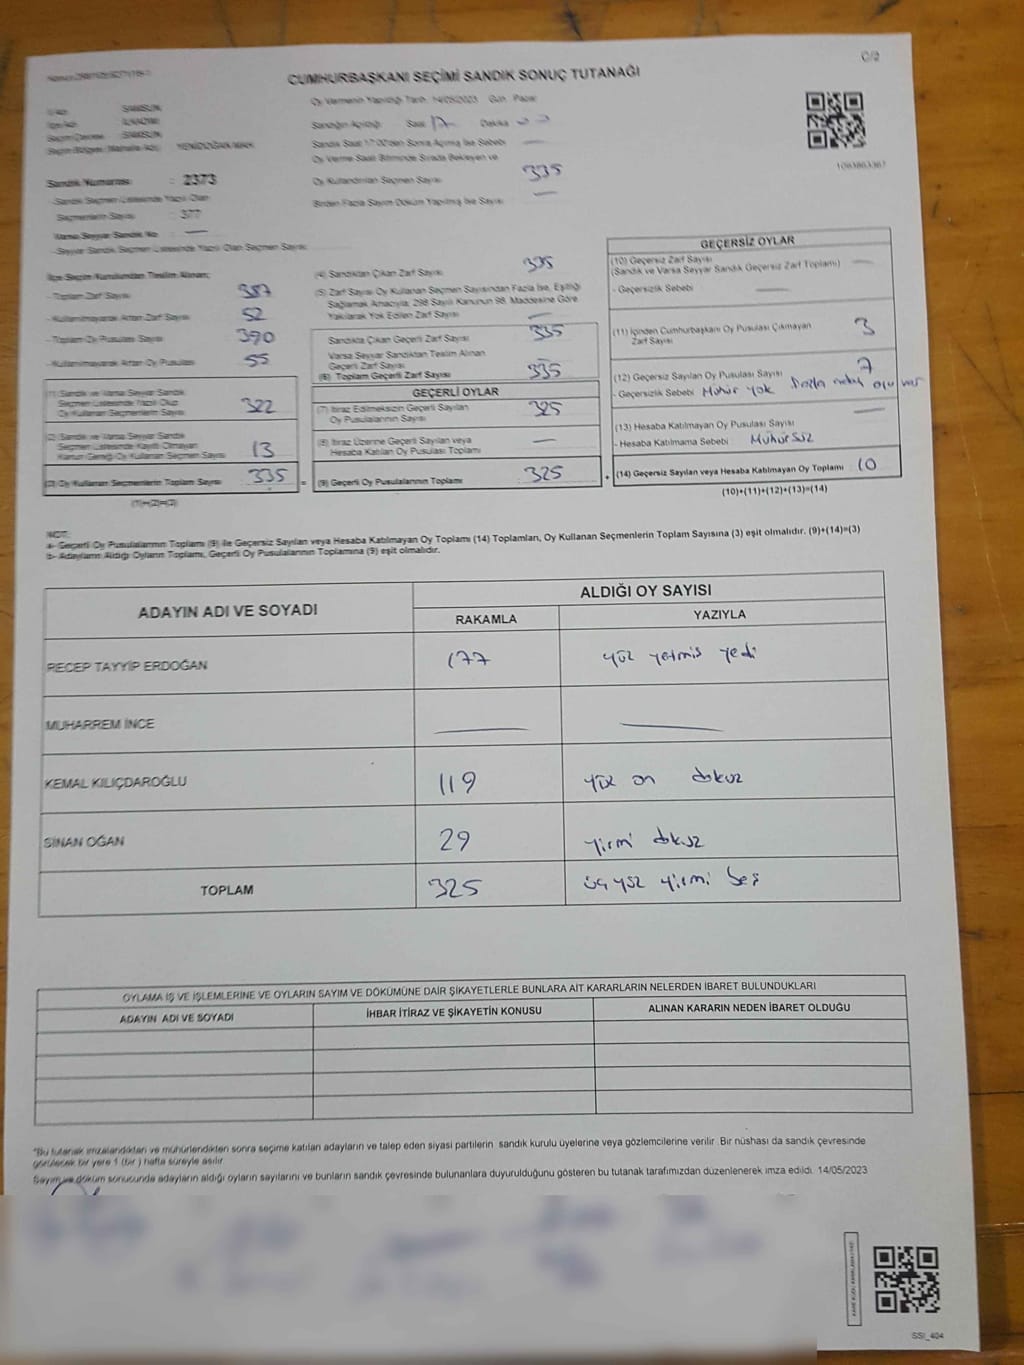 C/2
CUMHURBAŞKANI SEÇİMİ SANDIK SONUÇ TUTANAĞI
Oy Vermenin Yapıldığı Tarih: 14/05/2023 Gün: Pazar
İl Adı : SAMSUN
İlçe Adı : İLKADIM
Seçim Çevresi : SAMSUN
YENİDOĞAN MAH.
Sandığın Açıldığı Saat 17 Dakika
Sandık Saat 17:00'den Sonra Açılmış İse Sebebi —
Oy Verme Saati Bitiminde Sırada Bekleyen ve
Oy Kullandırılan Seçmen Sayısı 335
Birden Fazla Sayım Döküm Yapılmış İse Sayısı —
1093863367
Sandık Numarası : 2373
- Sandık Seçmen Listesinde Yazılı Olan
Seçmenlerin Sayısı : 377
Varsa Seyyar Sandık No : —
- Seyyar Sandık Seçmen Listesinde Yazılı Olan Seçmen Sayısı:
İlçe Seçim Kurulundan Teslim Alınan;
- Toplam Zarf Sayısı 387
- Kullanılmayarak Artan Zarf Sayısı 52
- Toplam Oy Pusulası Sayısı 390
- Kullanılmayarak Artan Oy Pusulası 55
(1) Sandık ve Varsa Seyyar Sandık
Seçmen Listesinde Yazılı Olup
Oy Kullanan Seçmenlerin Sayısı 322
(2) Sandık ve Varsa Seyyar Sandık
Seçmen Listesinde Kayıtlı Olmayan
Kanun Gereği Oy Kullanan Seçmen Sayısı 13
(3) Oy Kullanan Seçmenlerin Toplam Sayısı 335
(1)+(2)=(3)
(4) Sandıktan Çıkan Zarf Sayısı 335
(5) Zarf Sayısı Oy Kullanan Seçmen Sayısından Fazla İse, Eşitliği
Sağlamak Amacıyla, 298 Sayılı Kanunun 98. Maddesine Göre
Yakılarak Yok Edilen Zarf Sayısı —
Sandıkta Çıkan Geçerli Zarf Sayısı 335
Varsa Seyyar Sandıktan Teslim Alınan
Geçerli Zarf Sayısı —
(6) Toplam Geçerli Zarf Sayısı 335
GEÇERLİ OYLAR
(7) İtiraz Edilmeksizin Geçerli Sayılan
Oy Pusulalarının Sayısı 325
(8) İtiraz Üzerine Geçerli Sayılan veya
Hesaba Katılan Oy Pusulası Toplamı —
= (9) Geçerli Oy Pusulalarının Toplamı 325
GEÇERSİZ OYLAR
(10) Geçersiz Zarf Sayısı
(Sandık ve Varsa Seyyar Sandık Geçersiz Zarf Toplamı) —
- Geçersizlik Sebebi —
(11) İçinden Cumhurbaşkanı Oy Pusulası Çıkmayan
Zarf Sayısı 3
(12) Geçersiz Sayılan Oy Pusulası Sayısı 7
- Geçersizlik Sebebi Mühür yok
(13) Hesaba Katılmayan Oy Pusulası Sayısı —
- Hesaba Katılmama Sebebi Mühürsüz
+ (14) Geçersiz Sayılan veya Hesaba Katılmayan Oy Toplamı 10
(10)+(11)+(12)+(13)=(14)
NOT:
a- Geçerli Oy Pusulalarının Toplamı (9) ile Geçersiz Sayılan veya Hesaba Katılmayan Oy Toplamı (14) Toplamları, Oy Kullanan Seçmenlerin Toplam Sayısına (3) eşit olmalıdır. (9)+(14)=(3)
b- Adayların Aldığı Oyların Toplamı, Geçerli Oy Pusulalarının Toplamına (9) eşit olmalıdır.
ADAYIN ADI VE SOYADI
ALDIĞI OY SAYISI
RAKAMLA YAZIYLA
RECEP TAYYİP ERDOĞAN 177 yüz yetmiş yedi
MUHARREM İNCE — —
KEMAL KILIÇDAROĞLU 119 yüz on dokuz
SİNAN OĞAN 29 yirmi dokuz
TOPLAM 325 üç yüz yirmi beş
OYLAMA İŞ VE İŞLEMLERİNE VE OYLARIN SAYIM VE DÖKÜMÜNE DAİR ŞİKAYETLERLE BUNLARA AİT KARARLARIN NELERDEN İBARET BULUNDUKLARI
ADAYIN ADI VE SOYADI İHBAR İTİRAZ VE ŞİKAYETİN KONUSU ALINAN KARARIN NEDEN İBARET OLDUĞU
*Bu tutanak imzalandıktan ve mühürlendikten sonra seçime katılan adayların ve talep eden siyasi partilerin sandık kurulu üyelerine veya gözlemcilerine verilir. Bir nüshası da sandık çevresinde
görülecek bir yere 1 (bir) hafta süreyle asılır.
Sayım ve döküm sonucunda adayların aldığı oyların sayılarını ve bunların sandık çevresinde bulunanlara duyurulduğunu gösteren bu tutanak tarafımızdan düzenlenerek imza edildi. 14/05/2023
SSİ_404